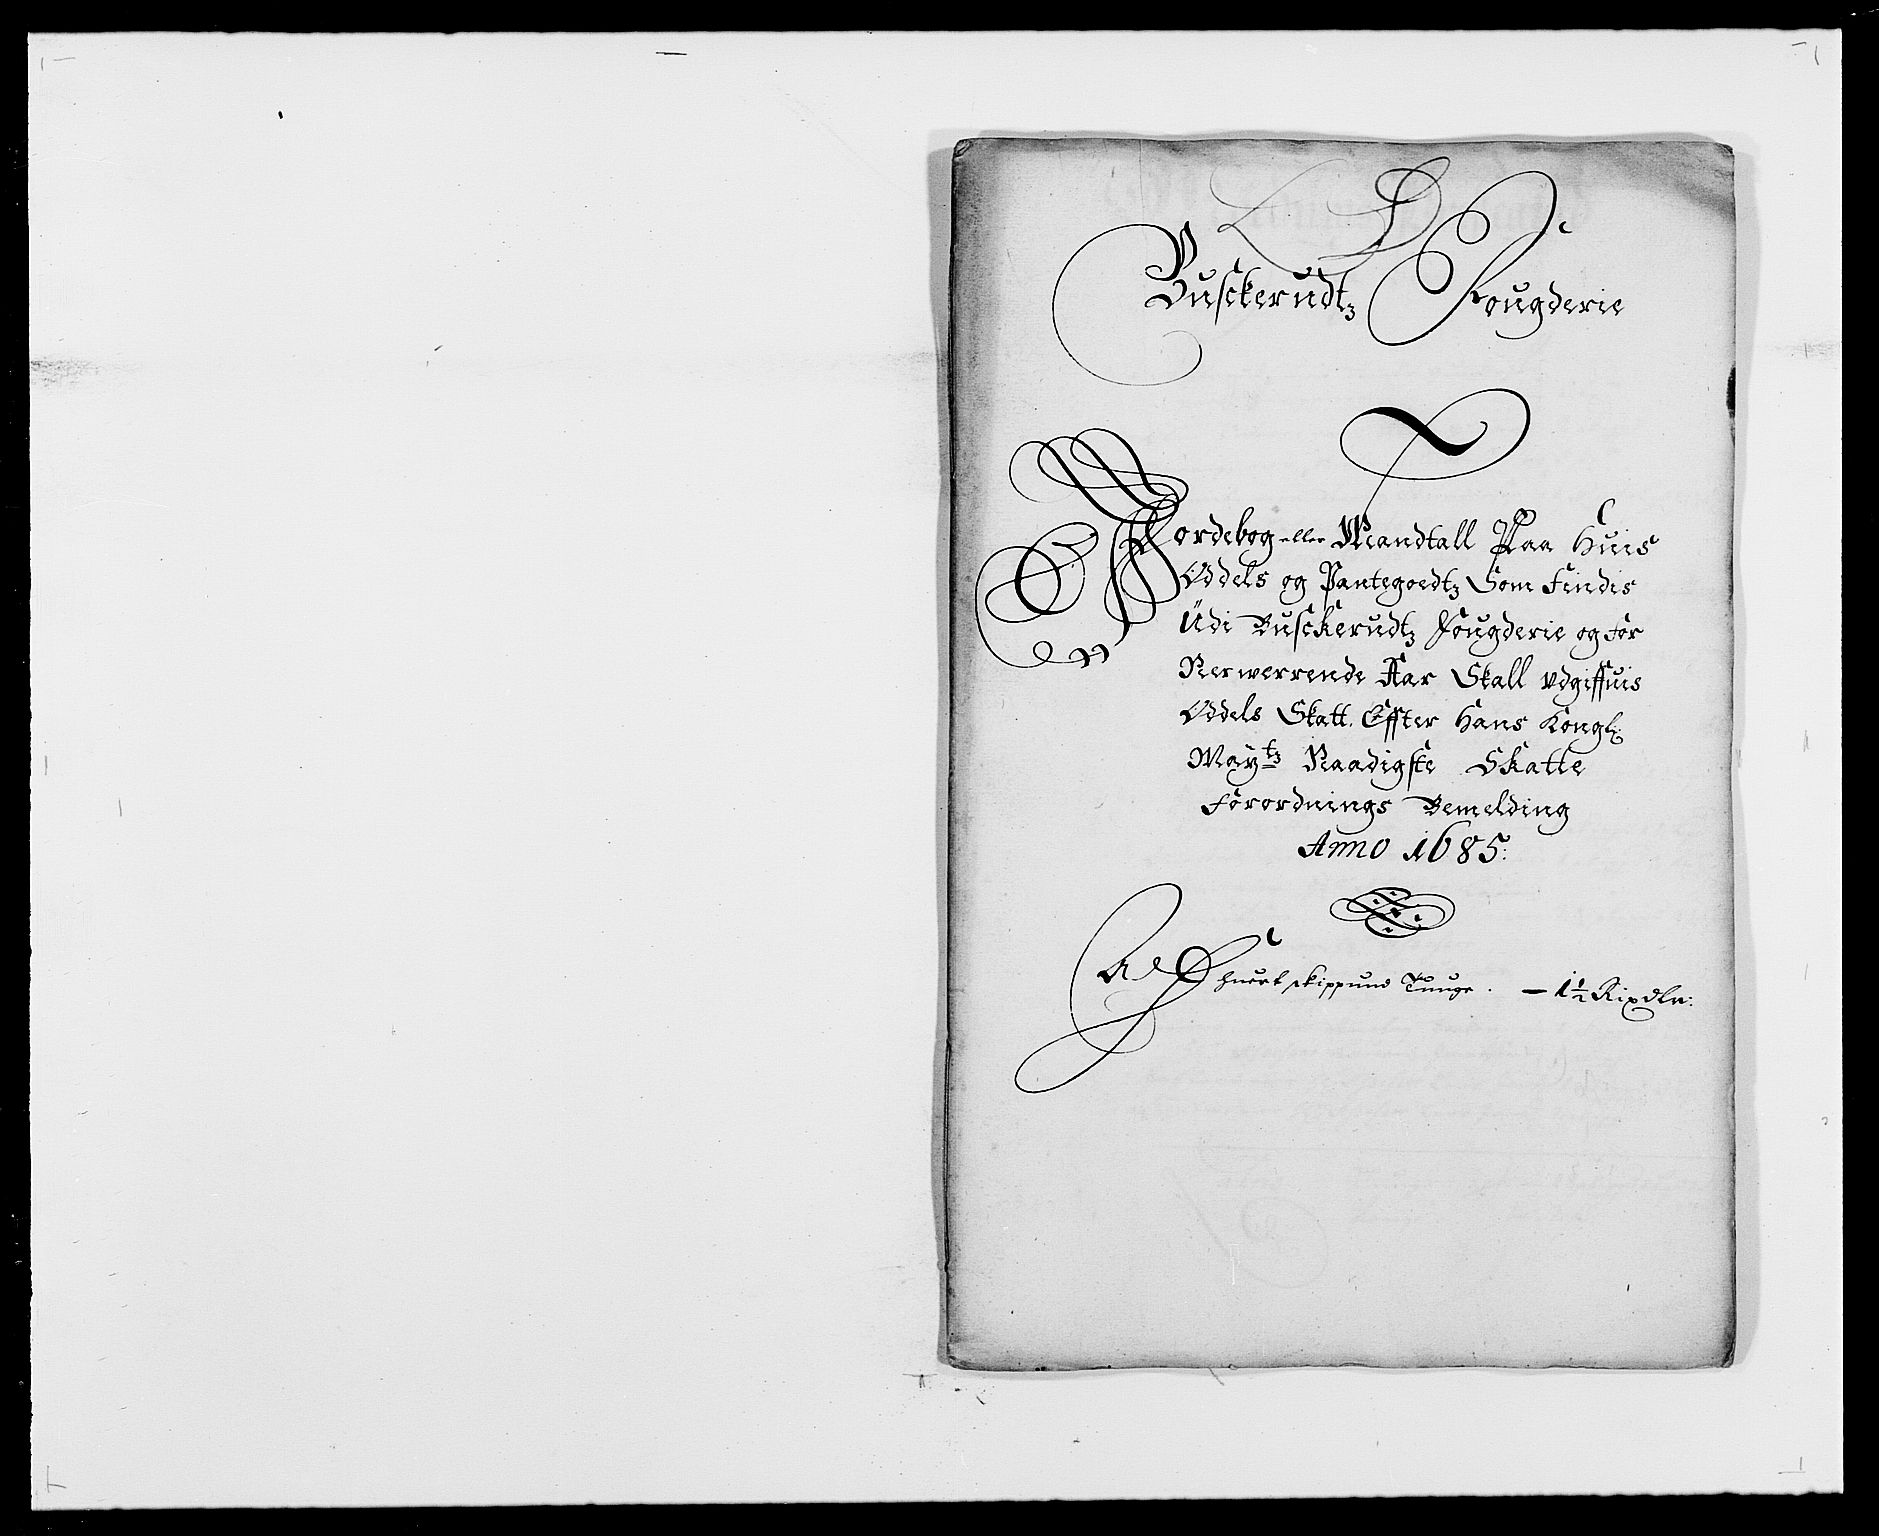 Buschkerudtz Fougderie
Jordebog eller Mandtall Paa Huis
Oddels og Pantegoedtz Som Findis
Udi Busckerudtz Fougderie og for
Nerwerrende Aar Skall udgiffuis
Oddels Skatt. Effter Hans Kongl:
Maytz Naadigste Skatte
Forordnings Bemelding
Anno 1685:
Af huert skippund Tunge. – 1½ Rixdlr: